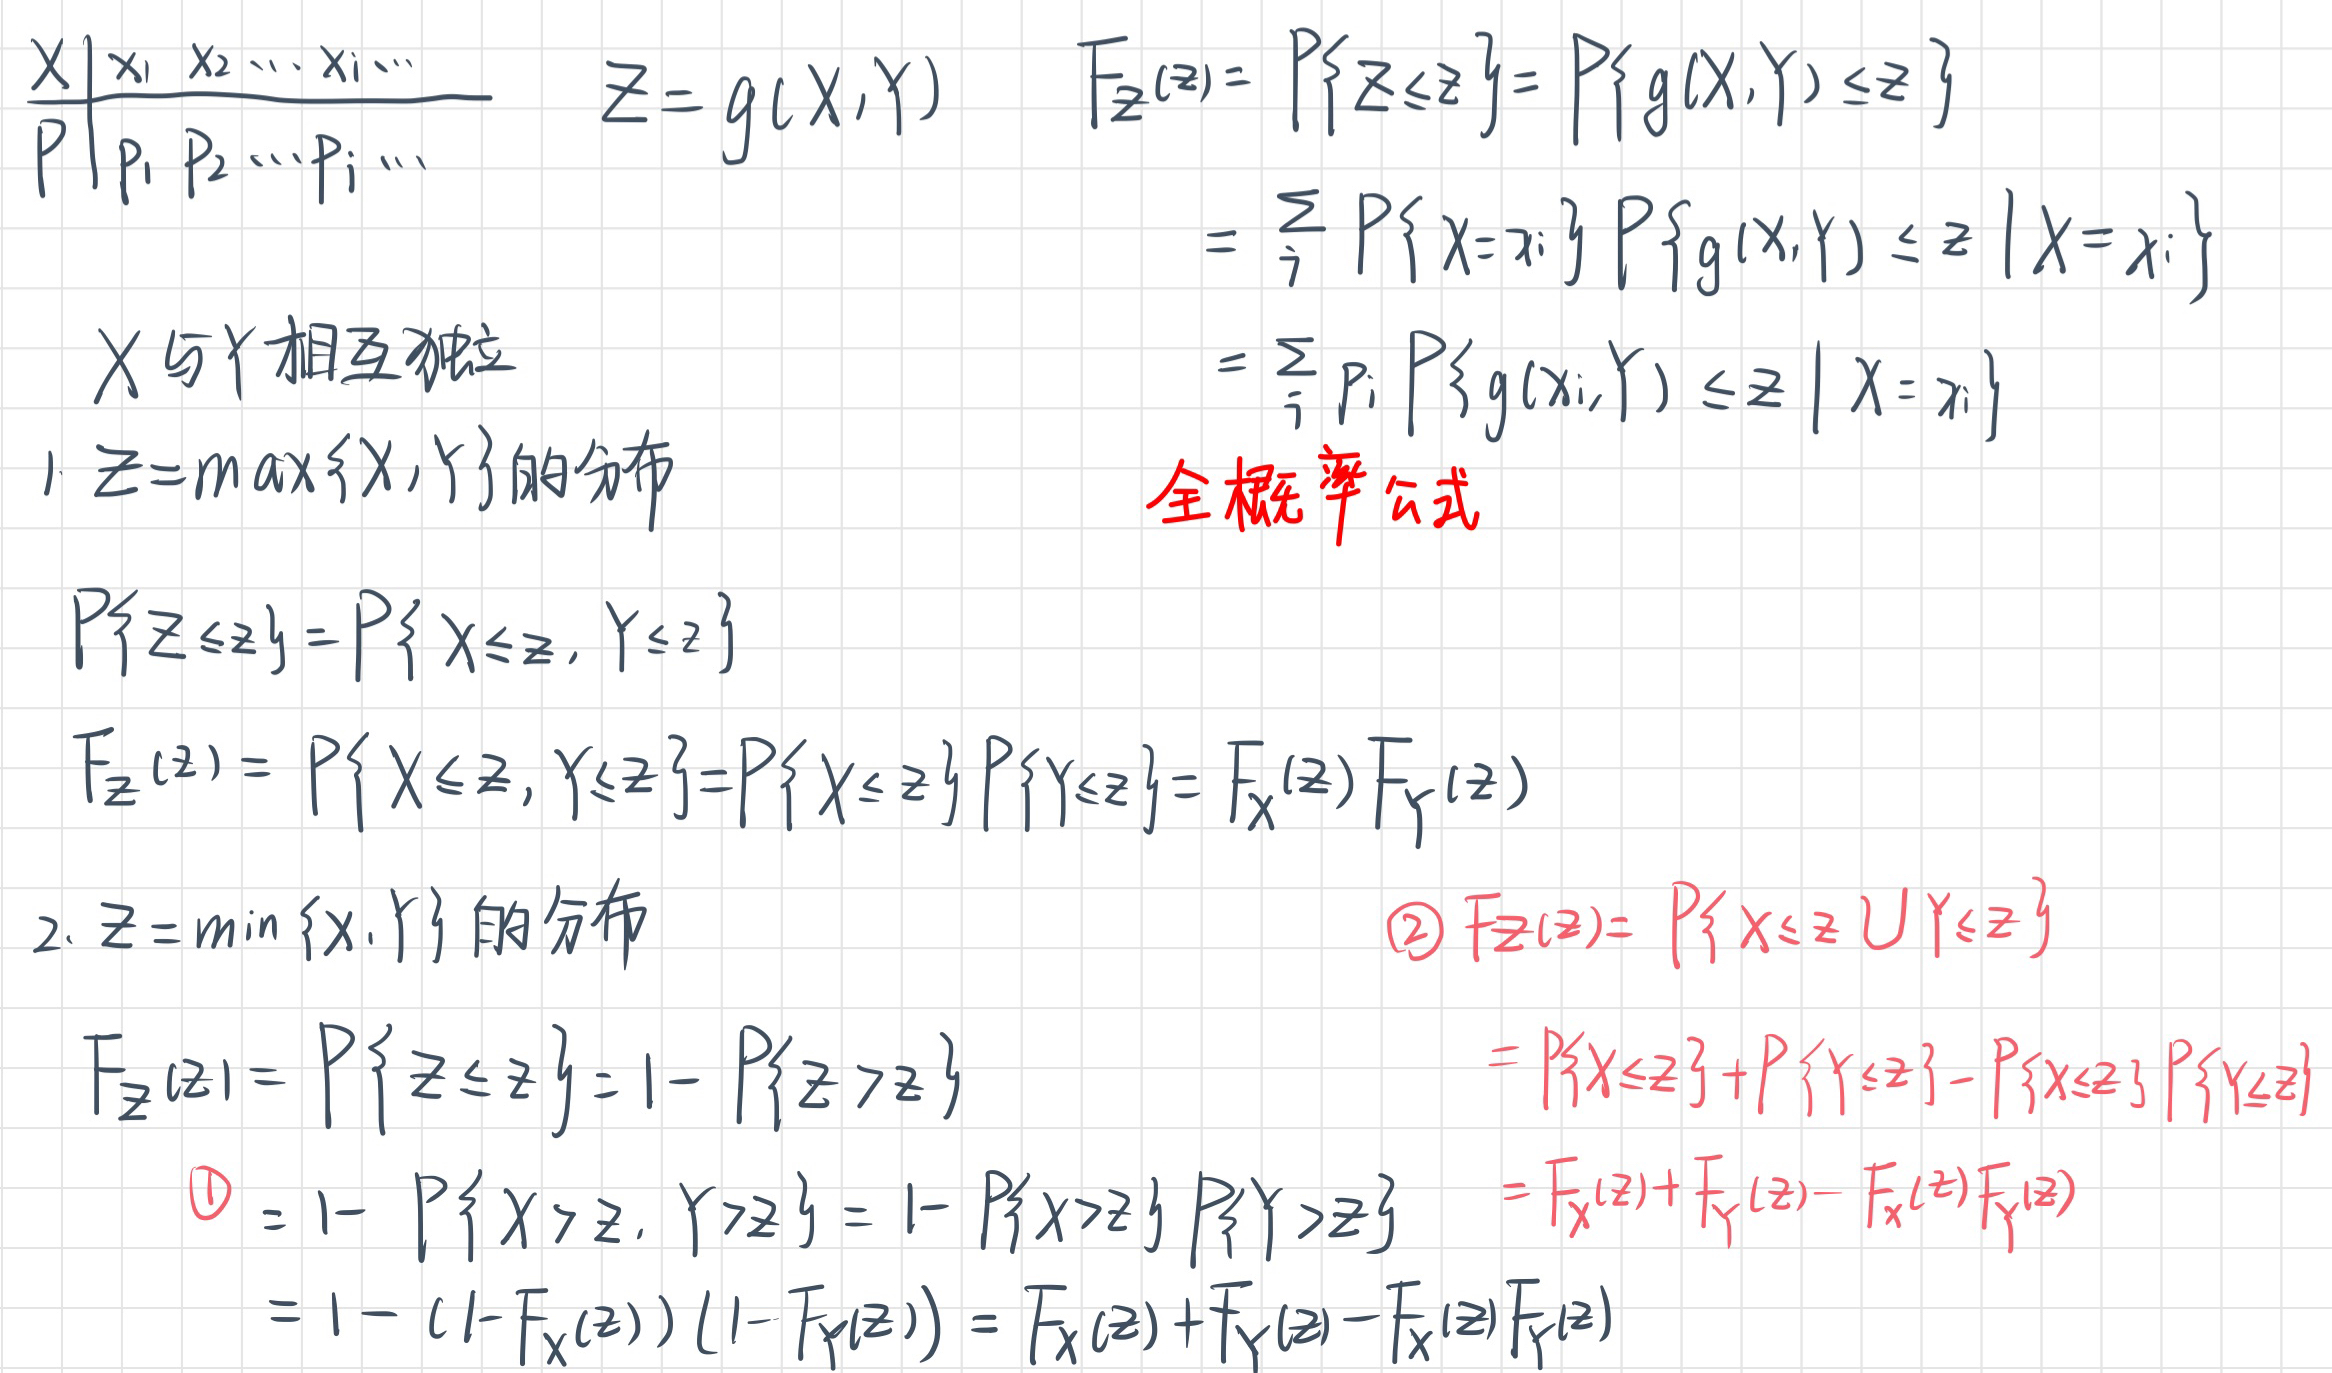 X | x₁ x₂ ⋯ xᵢ ⋯
P | p₁ p₂ ⋯ pᵢ ⋯
Z = g(X, Y)
F_Z(z) = P{Z ≤ z} = P{g(X, Y) ≤ z}
= Σᵢ P{X = xᵢ} P{g(X, Y) ≤ z | X = xᵢ}
= Σᵢ pᵢ P{g(xᵢ, Y) ≤ z | X = xᵢ}
全概率公式
X与Y相互独立
1. Z = max{X, Y}的分布
P{Z ≤ z} = P{X ≤ z, Y ≤ z}
F_Z(z) = P{X ≤ z, Y ≤ z} = P{X ≤ z} P{Y ≤ z} = F_X(z) F_Y(z)
2. Z = min{X, Y}的分布
F_Z(z) = P{Z ≤ z} = 1 − P{Z > z}
① = 1 − P{X > z, Y > z} = 1 − P{X > z} P{Y > z}
= 1 − (1 − F_X(z)) (1 − F_Y(z)) = F_X(z) + F_Y(z) − F_X(z) F_Y(z)
② F_Z(z) = P{X ≤ z ∪ Y ≤ z}
= P{X ≤ z} + P{Y ≤ z} − P{X ≤ z} P{Y ≤ z}
= F_X(z) + F_Y(z) − F_X(z) F_Y(z)